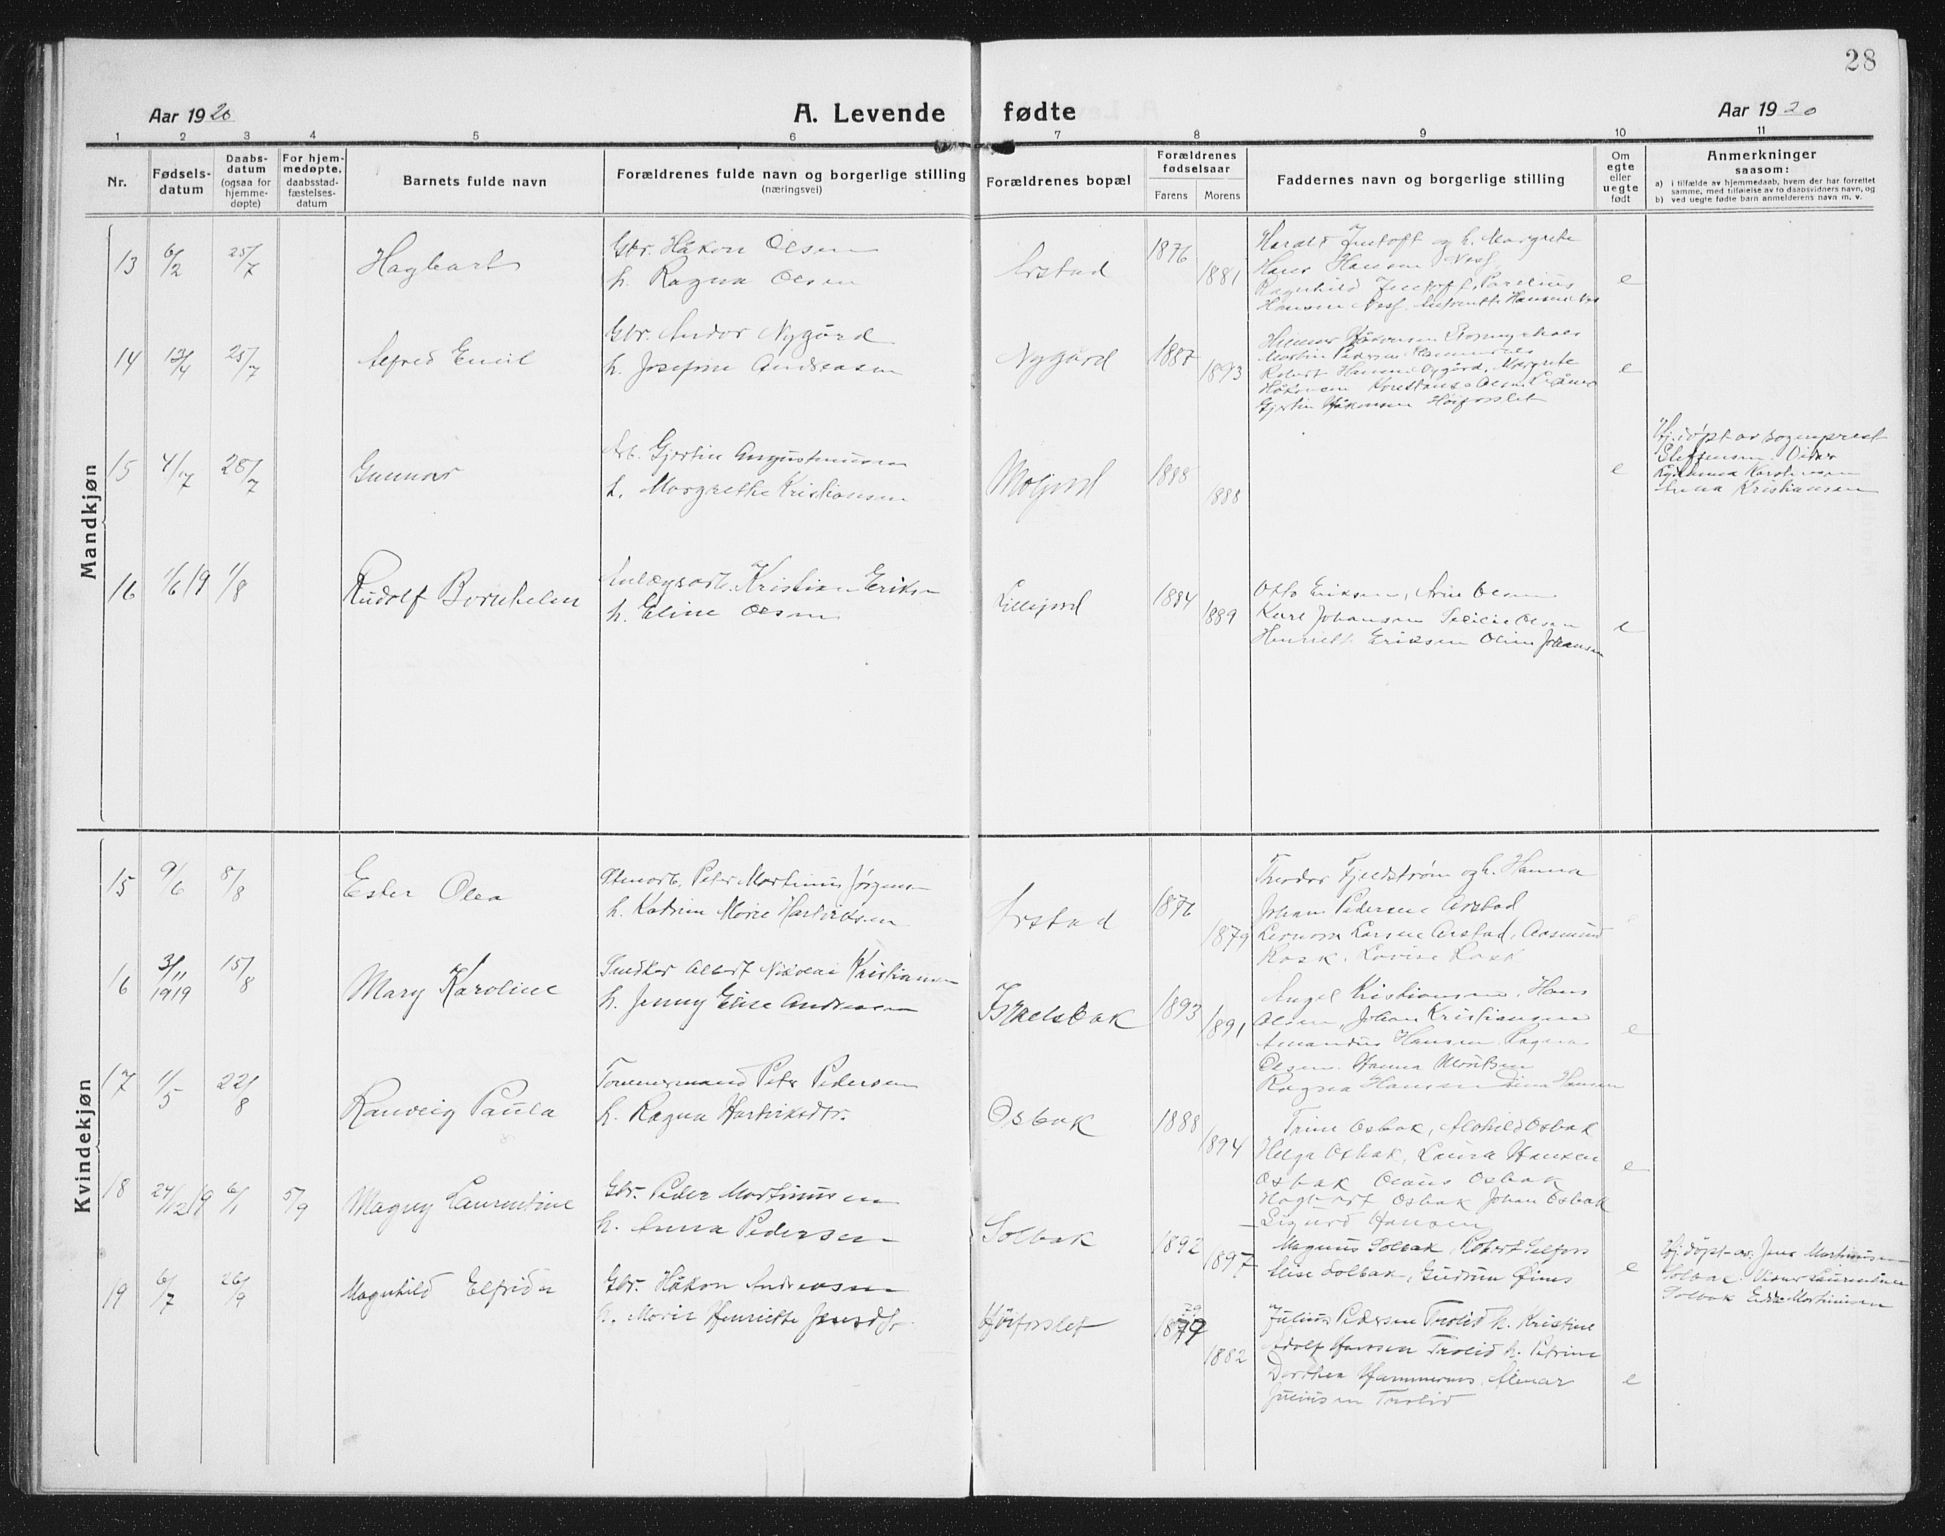 28
Aar 1920
A. Levende fødte
Aar 1920
1 2 3 4 5 6 7 8 9 10 11
Nr.
Fødsels-
datum
Daabs-
datum
(ogsaa for
hjemme-
døpte)
For hjem-
medøpte,
daabsstad-
fæstelses-
datum
Barnets fulde navn
Forældrenes fulde navn og borgerlige stilling
(næringsvei)
Forældrenes bopæl
Forældrenes
fødselsaar
Farens Morens
Faddernes navn og borgerlige stilling
Om
egte
eller
uegte
født
Anmerkninger
saasom:
a) i tilfælde av hjemmedaab, hvem der har forrettet
samme, med tilføielse av to daabsvidners navn, og
b) ved uegte fødte barn anmelderens navn m. v.
Mandkjøn
13 6/2 25/7 Hagbart
Gbr. Håkon Olsen
h. Ragna Olsen
Arstad 1876 1881
og h. Margrete
Hans Hansen Ness
e
14 12/4 25/7 Alfred Emil
Gbr. Andor Nygård
h. Josefine Andreasen
Nygård 1887 1893
Martin Pedersen
Robert Hansen Nygård, Margrete
Håkonsen Konstanse Olsen
Gjertin Håkonsen Høiforslet
e
15 4/7 28/7 Gunnar
Arb. Gjertin Augustinussen
h. Margrethe Kristiansen
Moljord 1888 1888
e
Hj.døpt av sogneprest
Steffensen. Vidner
Karstensen
Anna Kristiansen
16 1/6 19 1/8 Rudolf Bornhelm
Anlægsarb. Kristian Eriksen
h. Eline Olsen
Lillejord 1884 1889
Otto Eriksen, Arne Olsen
Karl Johansen Olsen
Eriksen Oline Johansen
e
Kvindekjøn
15 9/6 8/8 Ester Olea
Stenarb. Peter Martinus Jørgensen
h. Katrine Marie Hartviksen
Arstad 1876 1879
Theodor Fjeldstrøm og h. Hanna
Johan Pedersen Arstad
Leonora Larsen Arstad, Aasmund
Rask. Lovise Rask
16 3/11 1919 15/8 Mary Karoline
Albert Nikolai Kristiansen
h. Jenny Elise Andreasen
Israelsbak 1893 1891
Angel Kristiansen. Hans
Olsen, Johan Kristiansen
Amandus Hansen. Ragna
Olsen. Hanna
Ragna Hansen Dina Hansen
e
17 1/5 22/8 Ranveig Paula
Tømmermand Peter Pedersen
h. Ragna Hartviksdtr.
Osbak 1888 1894
Trine Osbak, Osbak
Helga Osbak, Laura Hansen
Osbak Olaus Osbak
Hagbart Osbak Johan Osbak
Sigurd Hansen
e
18 24/12 19 6/1 5/9 Magny Laurentine
Gbr. Peder Martinussen
h. Anna Pedersen
Solbak 1892 1897
Magnus Solbak, Robert Selfors
Elise Solbak, Gudrun
e
Hj.døpt av Jens Martinussen
Solbak. Vidner Laurentine
Solbak Martinussen
19 6/7 26/9 Magnhild Elfrida
Gbr. Håkon Andreassen
h. Marie Henriette Jensdtr
Høiforslet 1879 1882
Julius Pedersen Trolid h. Kristine
Adolf Hanssen Trolid h. Petrine
Dorthea Hammernes. Almar
Juliussen Trolid
e